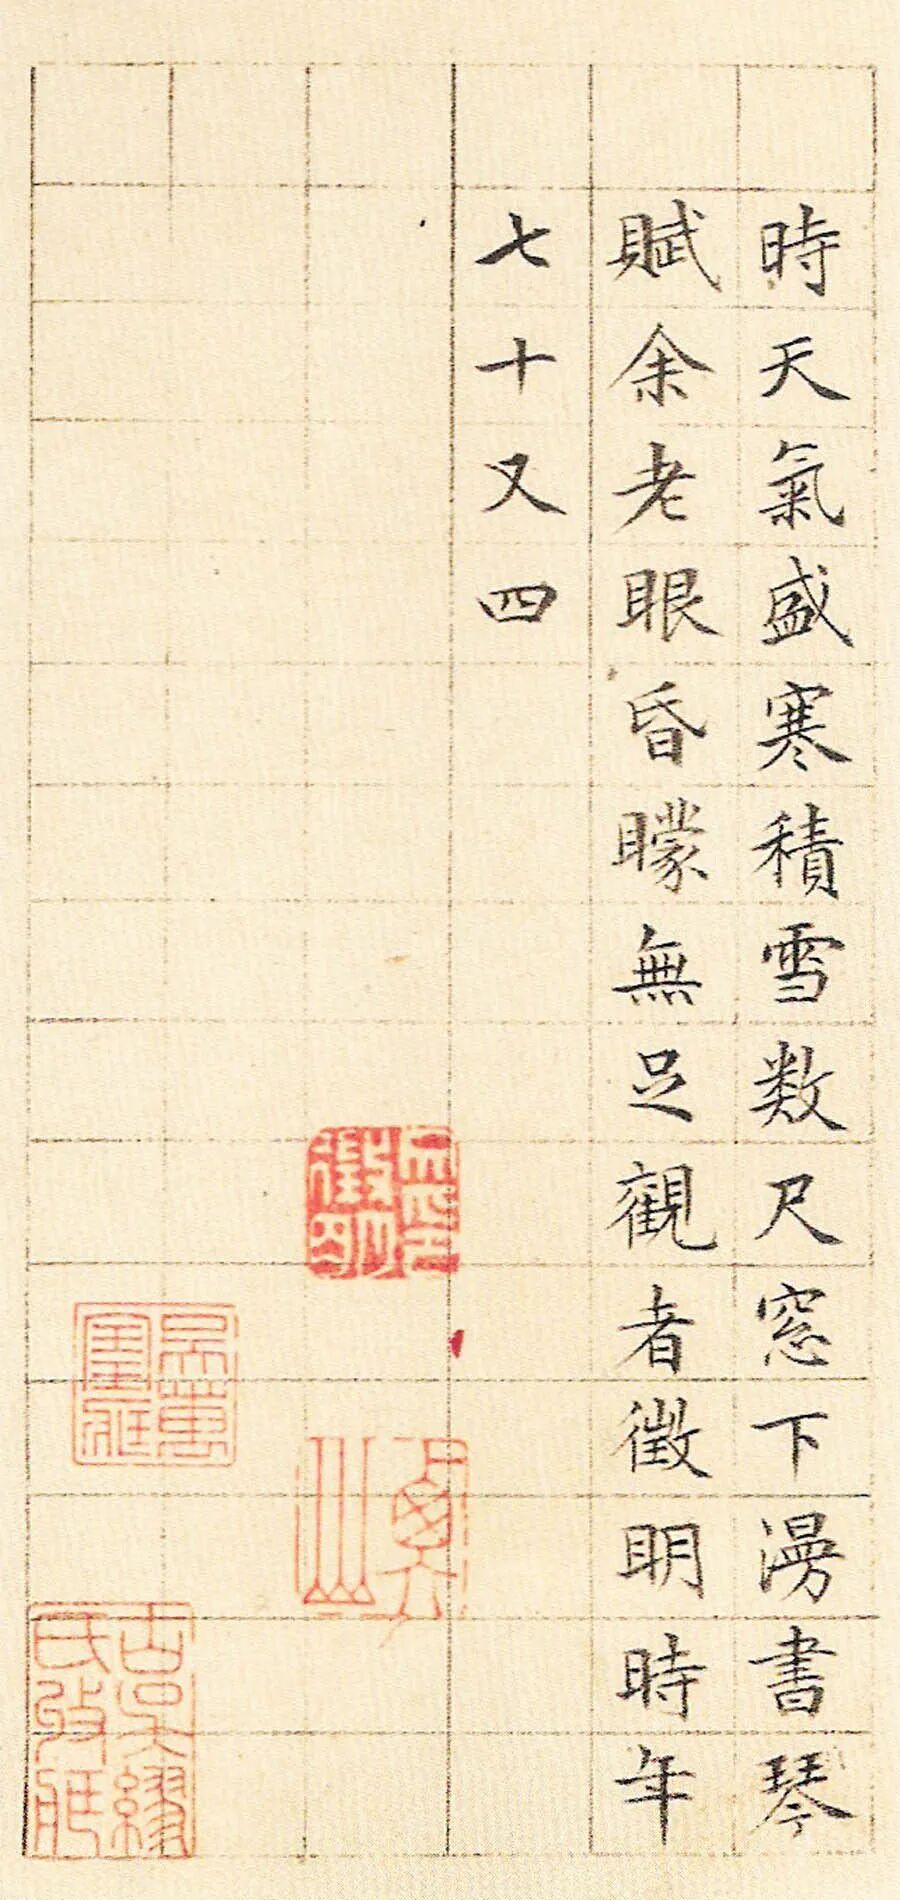 時天氣盛寒積雪数尺窓下漫書琴
賦余老眼昏矇無足觀者徵明時年
七十又四
貞山